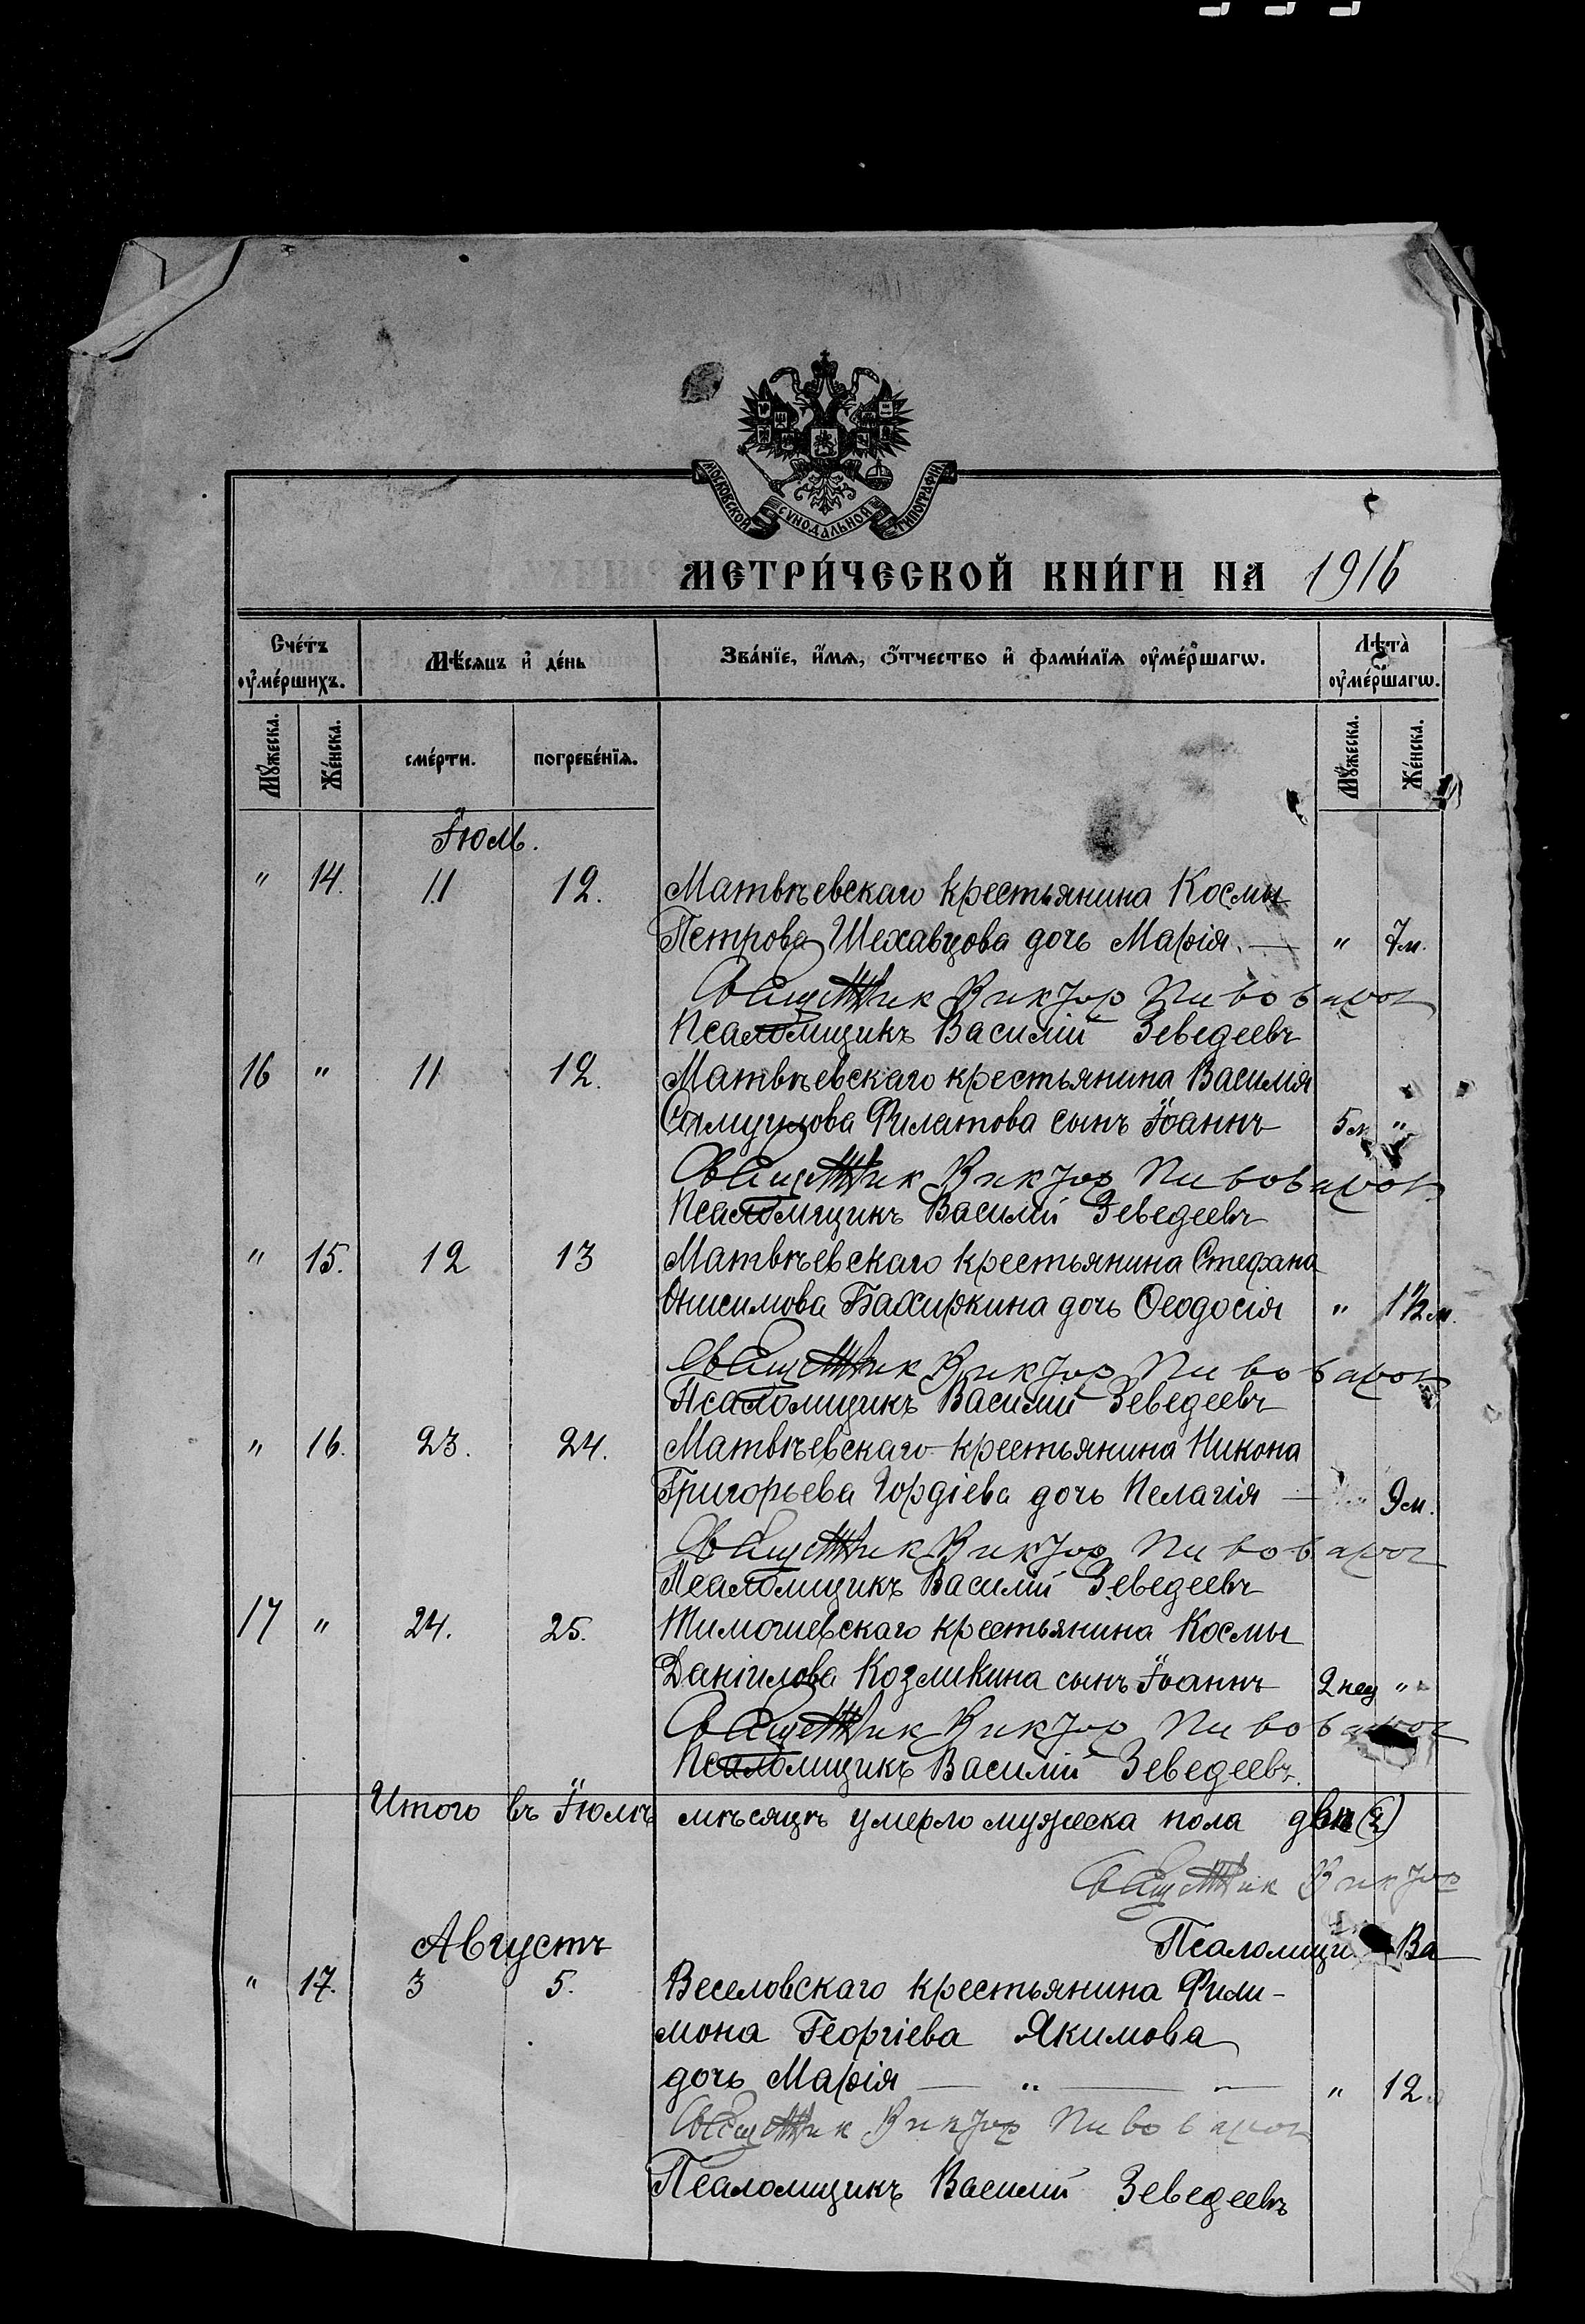 МОСКОВСКОЙ СУНОДАЛЬНОЙ ТИПОГРАФІИ
МЕТРИ́ЧЕСКОЙ КНИ́ГИ НА 1916
Счетъ оумершихъ.
Мѣсяцъ и день
Званіе, имя, отчество и фамилія оумершагѡ.
Лѣта оумершагѡ.
Мужеска.
Женска.
смерти.
погребенія.
Мужеска.
Женска.
Іюль.
" 14. 11 12. Матвѣевскаго крестьянина Космы
Петрова Шехавцова дочь Марія. — " 7 м.
Священник Виктор Пивоваров
Псаломщикъ Василій Зеведеевъ
16 " 11 12. Матвѣевскаго крестьянина Василія
Самуилова Филатова сынъ Іоаннъ 5 м. "
Священник Виктор Пивоваров
Псаломщикъ Василій Зеведеевъ
" 15. 12 13 Матвѣевскаго крестьянина Стефана
Онисимова Бахиркина дочь Ѳеодосія " 1½ м.
Священник Виктор Пивоваров
Псаломщикъ Василій Зеведеевъ
" 16. 23. 24. Матвѣевскаго крестьянина Никона
Григорьева Гордіева дочь Пелагія — 9 м.
Священник Виктор Пивоваров
Псаломщикъ Василій Зеведеевъ
17 " 24. 25. крестьянина Космы
Даніилова Козликина сынъ Іоаннъ 2 нед "
Священник Виктор Пивоваров
Псаломщикъ Василій Зеведеевъ.
Итого въ Іюлѣ мѣсяцѣ умерло мужеска пола два (2)
Священник Виктор
Августъ
Псаломщи Ва
" 17. 3 5. Веселовскаго крестьянина Фили-
мона Георгіева Якимова
дочь Марія — " — — " 12
Священник Виктор Пивоваров
Псаломщикъ Василій Зеведеевъ